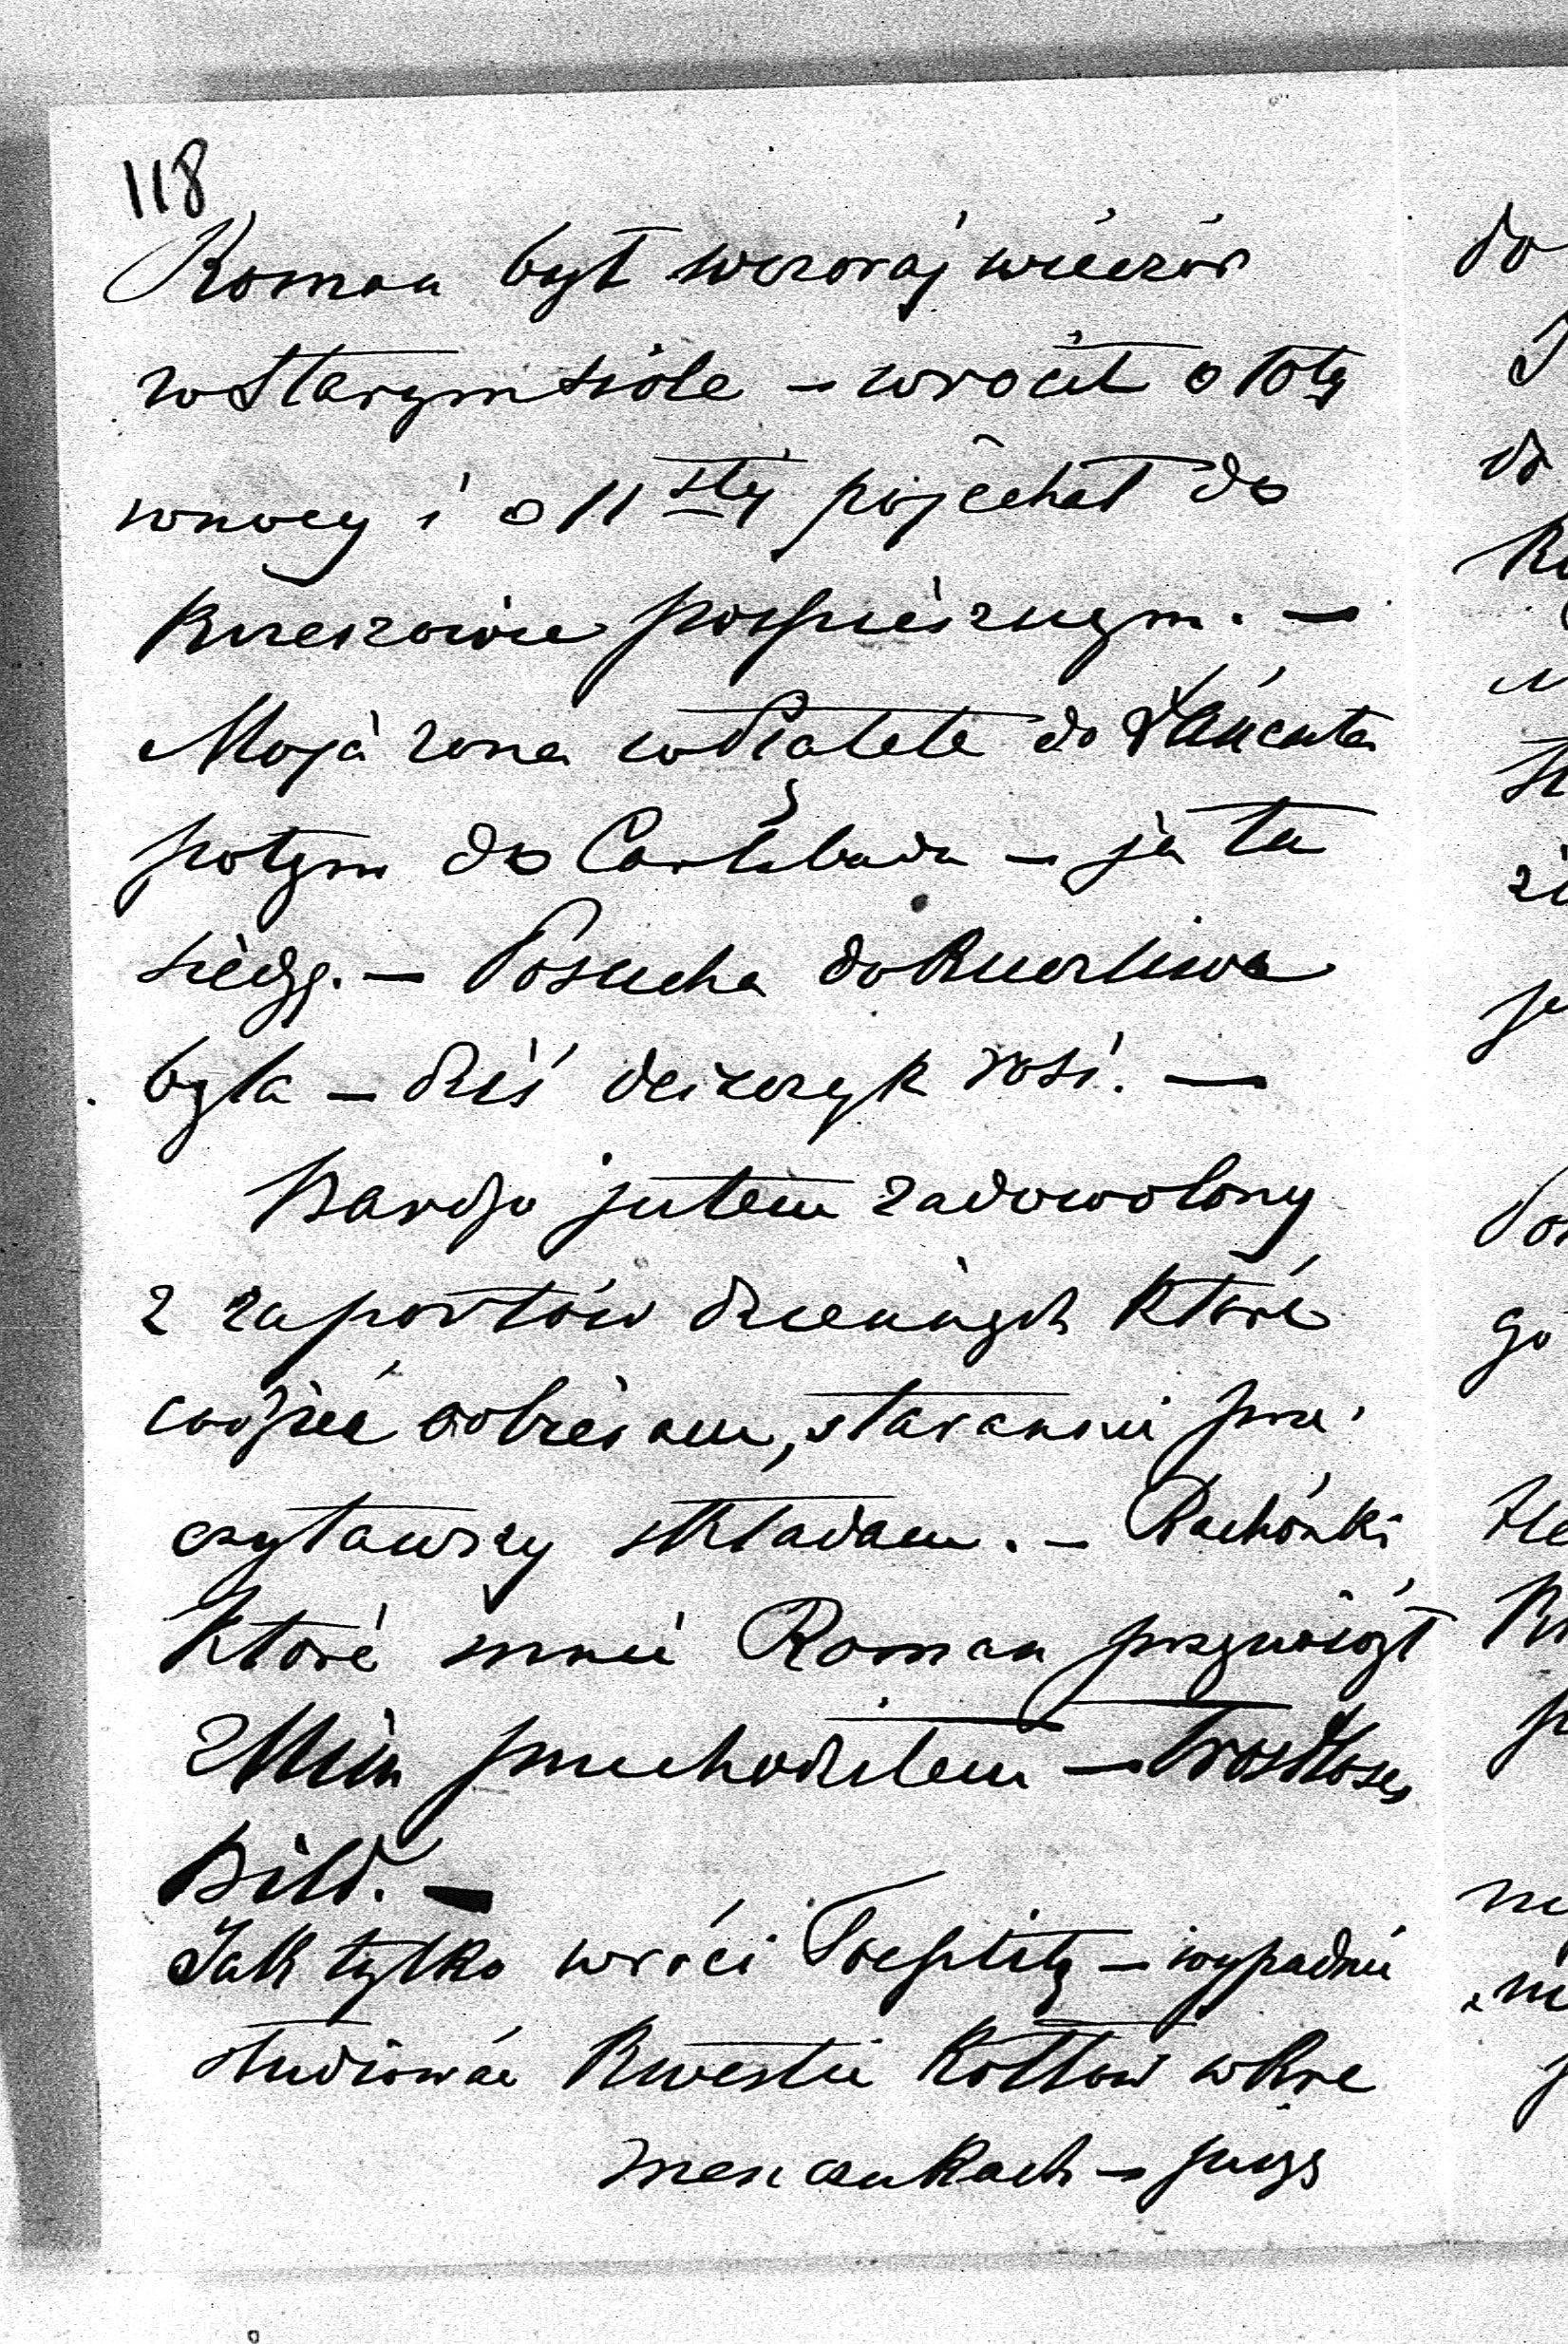 118
Roman był wczoraj wieczór
w Starym siole – wrócił o 10tę
w nocy i o 11stej pojechał do
Rzeszowa pospiesznym. –
Moja żona w Piątek do Łańcuta
potym do Carlsbadu – ja tu
siedzę. – Posucha dokuczliwa
była – dziś deszczyk rosi. –
Bardzo jestem zadowolony
z raportów dziennych które
codzień odbieram, starannie prze
czytawszy składam. – Rachónki
które mnie Roman przywiózł
z Min przechodziłem – Trostloses
Bild. –
Jak tylko wróci Toeplitz – wypadnie
studiować kwestie kotłów w Krze
meszankach –
do
do
go